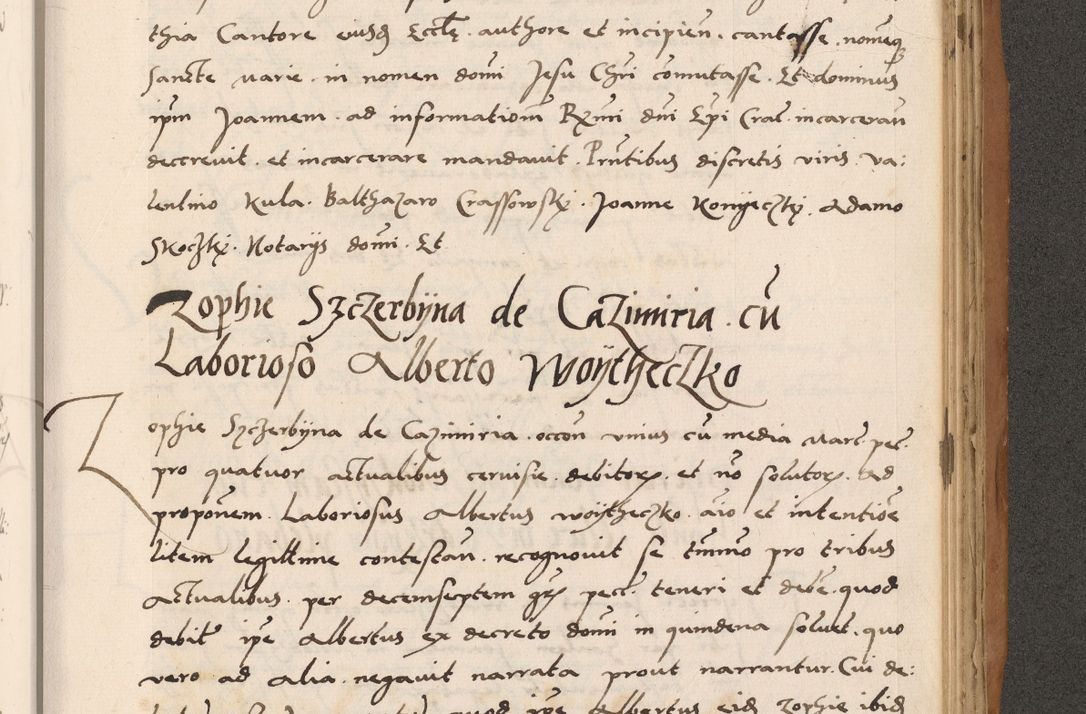 thia Cantore eiusd Eccłę authore et incipien. cantasse. nomenq
Sancte Marie in nomen domi Jesu Chri comutasse. Et dominus
ipm Joannem ad informationem Rxmi dni Epi Crac. incarceran
decrevit. et incarcerare mandavit. Pntibus discretis viris Va:
lentino Kula. Balthazaro Crassowsky. Joanne Konyeczky. Adamo
Skoczky. Notarys domi. Et
Zophie Szczerbyna de Cazimiria. cu
Laborioso Alberto Woytheczko
Zophie Szczerbyna de Cazimiria. occon unius cu media Marc. pec.
pro quatuor actualibus cervisie debitorz et no solutorz. Ad
proponem Laboriosus Albertus Woytheczko. aio et intentioe
litem legittime contestan. recognovit se tmmo pro tribus
actualibus. per decemseptem grz pecc. teneri et debe. quod
debit ipe Albertus ex decreto domi in quindena solvet. quo
vero ad alia. negavit narrata prout narrantur. Cui de:
quod ipe Albertus eid Zophie ibid